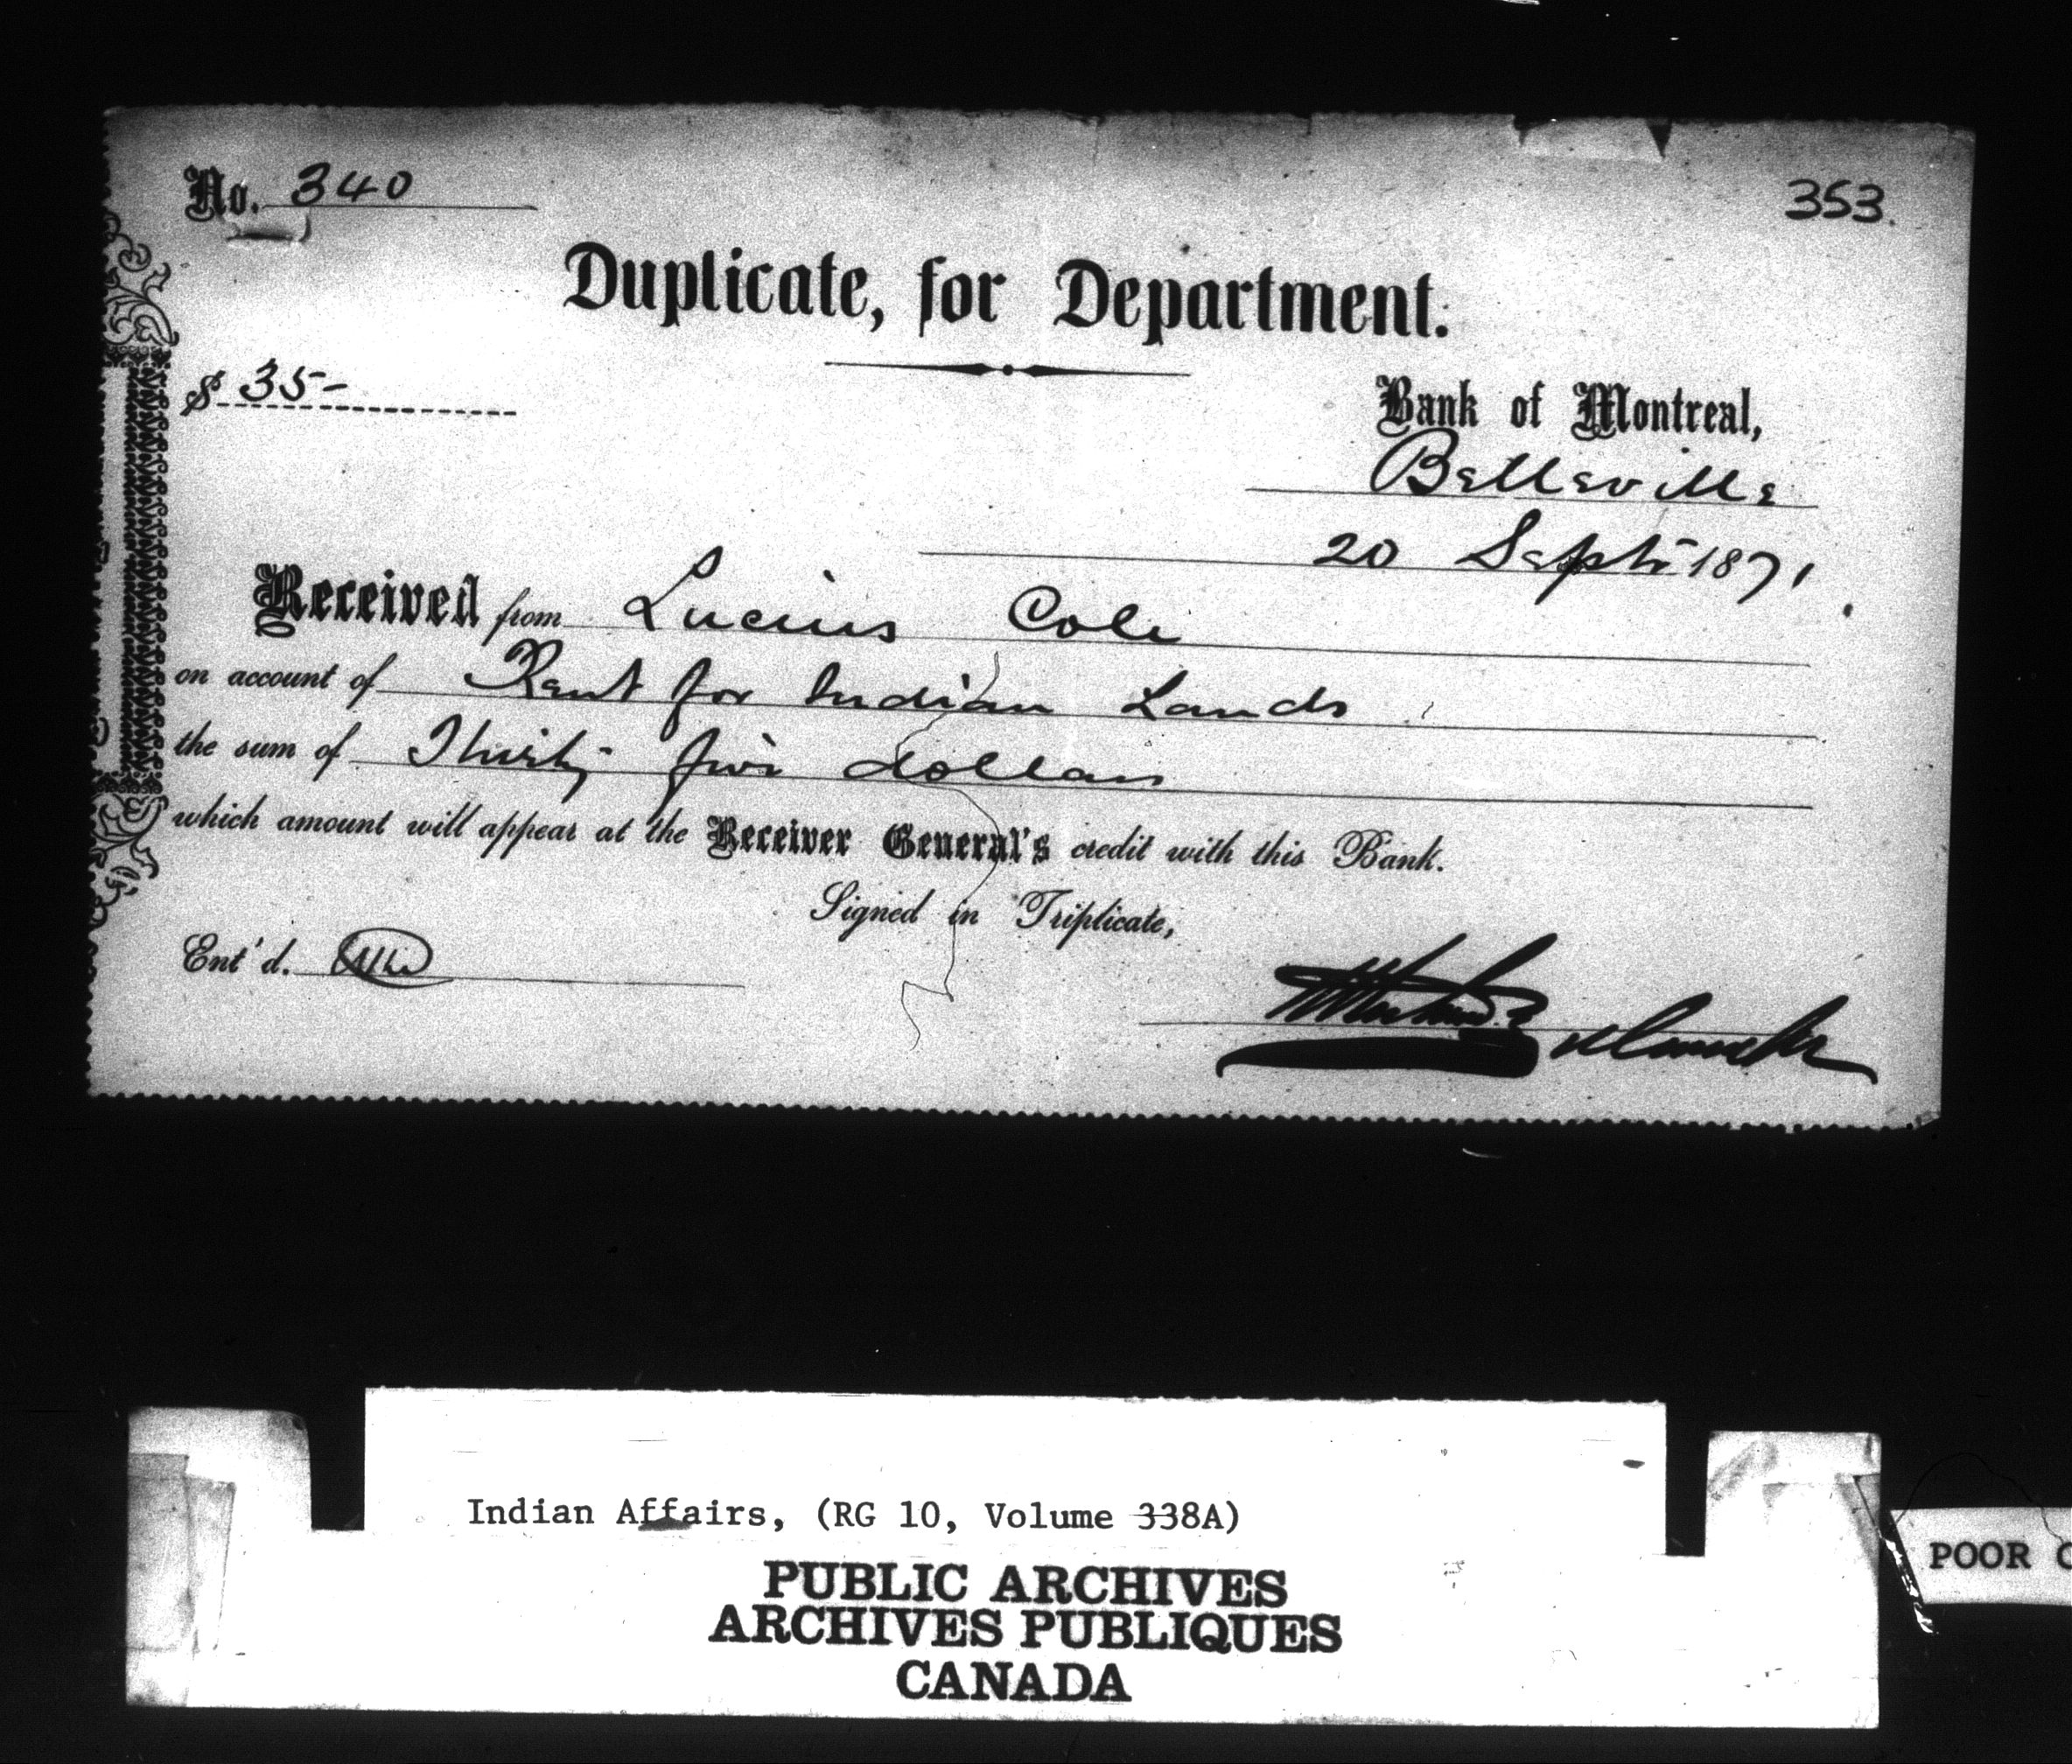 No. 340
353.
Duplicate, for Department.
$ 35-
Bank of Montreal,
Belleville
20 Sept. 1871.
Received from Lucius Cole
on account of Rent for Indian Lands
the sum of Thirty five dollars
which amount will appear at the Receiver General's credit with this Bank.
Signed in Triplicate,
Ent'd.
Indian Affairs, (RG 10, Volume 338A)
PUBLIC ARCHIVES
ARCHIVES PUBLIQUES
CANADA
POOR